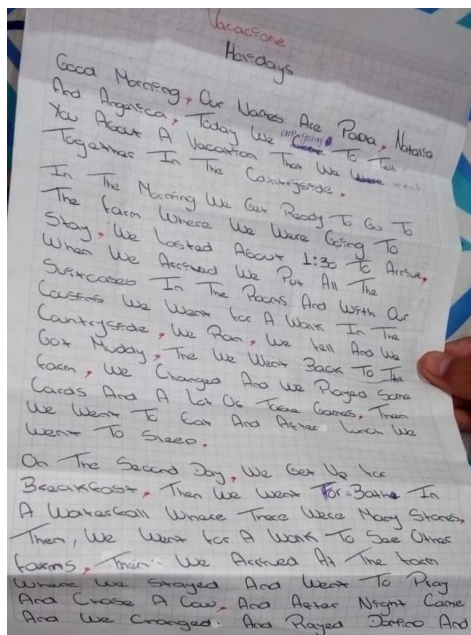 Vacacione
Holidays
Good Morning, Our Names Are Paola, Natalia
And Angelica, Today We are going To Tell
You About A Vacation That We went
Together In The Countryside.
In The Morning We Get Ready To Go To
The farm Where We Were Going To
Stay, We Lasted About 1:30 To Arrive,
When We Arrived We Put All The
Suitcases In The Rooms And With Our
Cousins We Went for A Walk In The
Countryside, We Ran, We fell And We
Got Muddy, The We Went Back To The
farm, We Changed And We Played Some
Cards And A Lot Of Games, Then
We Went To Eat And After Lunch We
Went To Sleep.
On The Second Day, We Get Up for
Breakfast, Then We Went For Bathe In
A Waterfall Where There Were Many Stones,
Then, We Went for A Walk To See Other
farms, Then We Arrived At The farm
Where We Stayed And Went To Play
And Chase A Cow, And After Night Came
And We Changed And Played Domino And